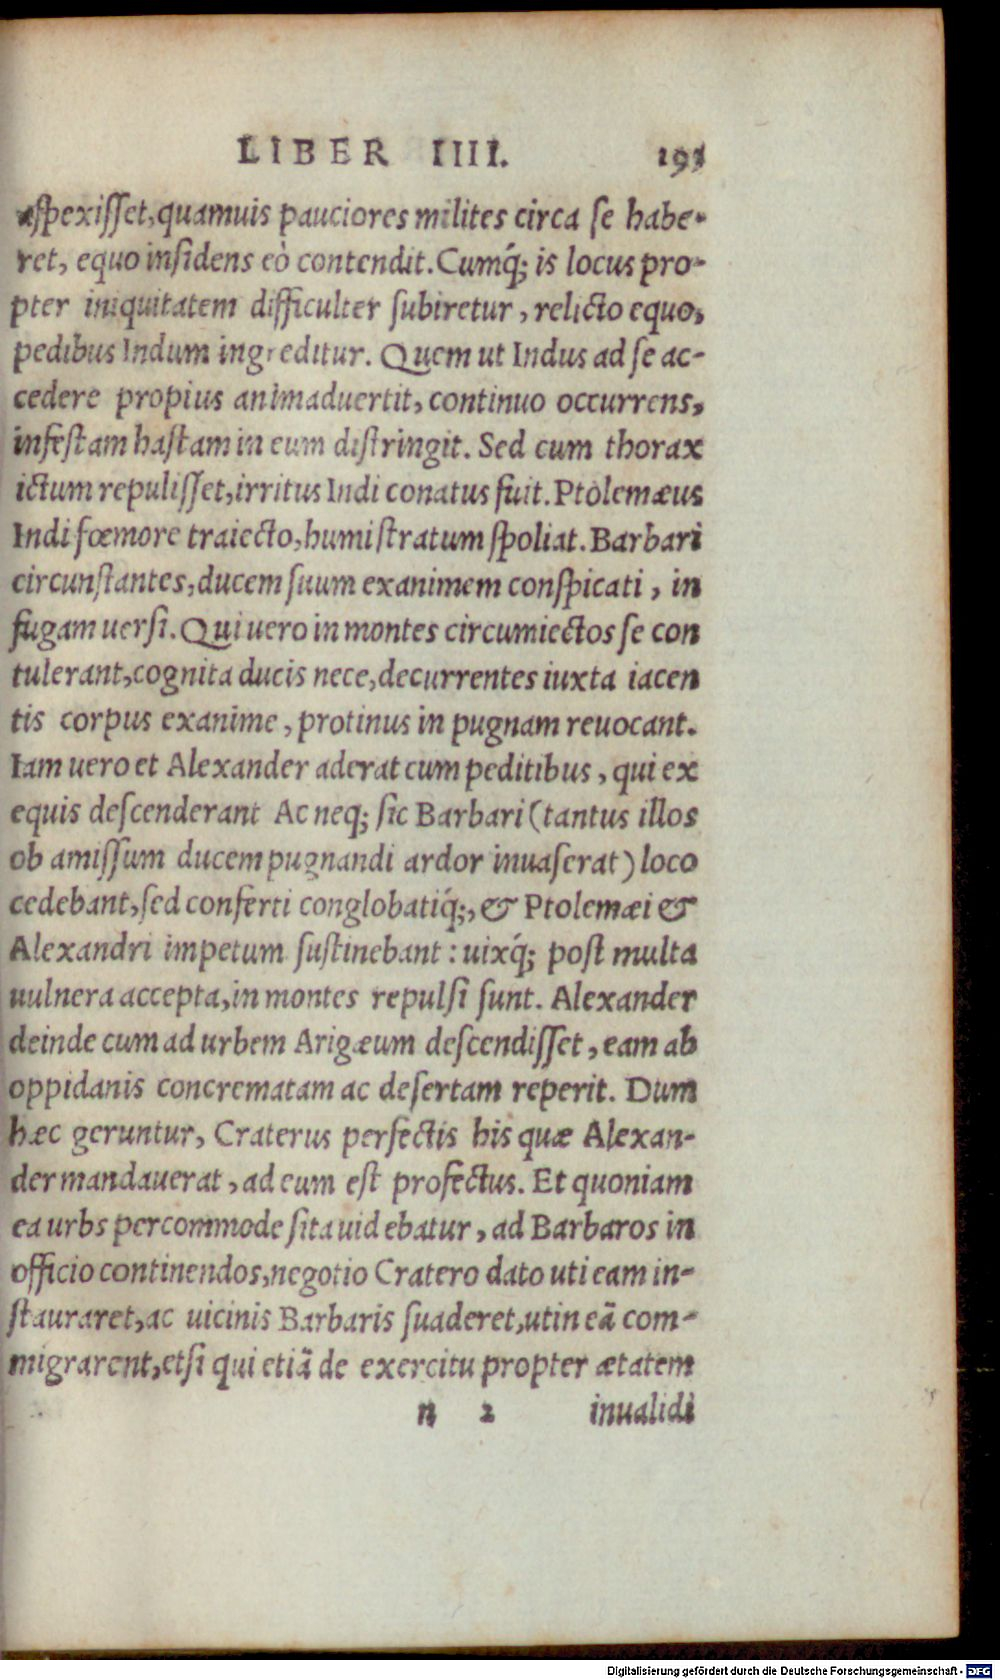 LIBER IIII. 195
aspexisset, quamuis pauciores milites circa se habe-
ret, equo insidens eò contendit. Cumq́; is locus pro-
pter iniquitatem difficulter subiretur, relicto equo,
pedibus Indum ingreditur. Quem ut Indus ad se ac-
cedere propius animaduertit, continuo occurrens,
infestam hastam in eum distringit. Sed cum thorax
ictum repulisset, irritus Indi conatus fuit. Ptolemæus
Indi fœmore traiecto, humi stratum spoliat. Barbari
circunstantes, ducem suum exanimem conspicati, in
fugam uersi. Qui uero in montes circumiectos se con
tulerant, cognita ducis nece, decurrentes iuxta iacen
tis corpus exanime, protinus in pugnam reuocant.
Iam uero et Alexander aderat cum peditibus, qui ex
equis descenderant Ac neq; sic Barbari (tantus illos
ob amissum ducem pugnandi ardor inuaserat) loco
cedebant, sed conferti conglobatiq́;, & Ptolemæi &
Alexandri impetum sustinebant: uixq́; post multa
uulnera accepta, in montes repulsi sunt. Alexander
deinde cum ad urbem Arigæum descendisset, eam ab
oppidanis concrematam ac desertam reperit. Dum
hæc geruntur, Craterus perfectis his quæ Alexan-
der mandauerat, ad eum est profectus. Et quoniam
ea urbs percommode sita uidebatur, ad Barbaros in
officio continendos, negotio Cratero dato uti eam in-
stauraret, ac uicinis Barbaris suaderet, ut in eã com-
migrarent, etsi qui etiã de exercitu propter ætatem
n 2 inualidi
Digitalisierung gefördert durch die Deutsche Forschungsgemeinschaft - DFG